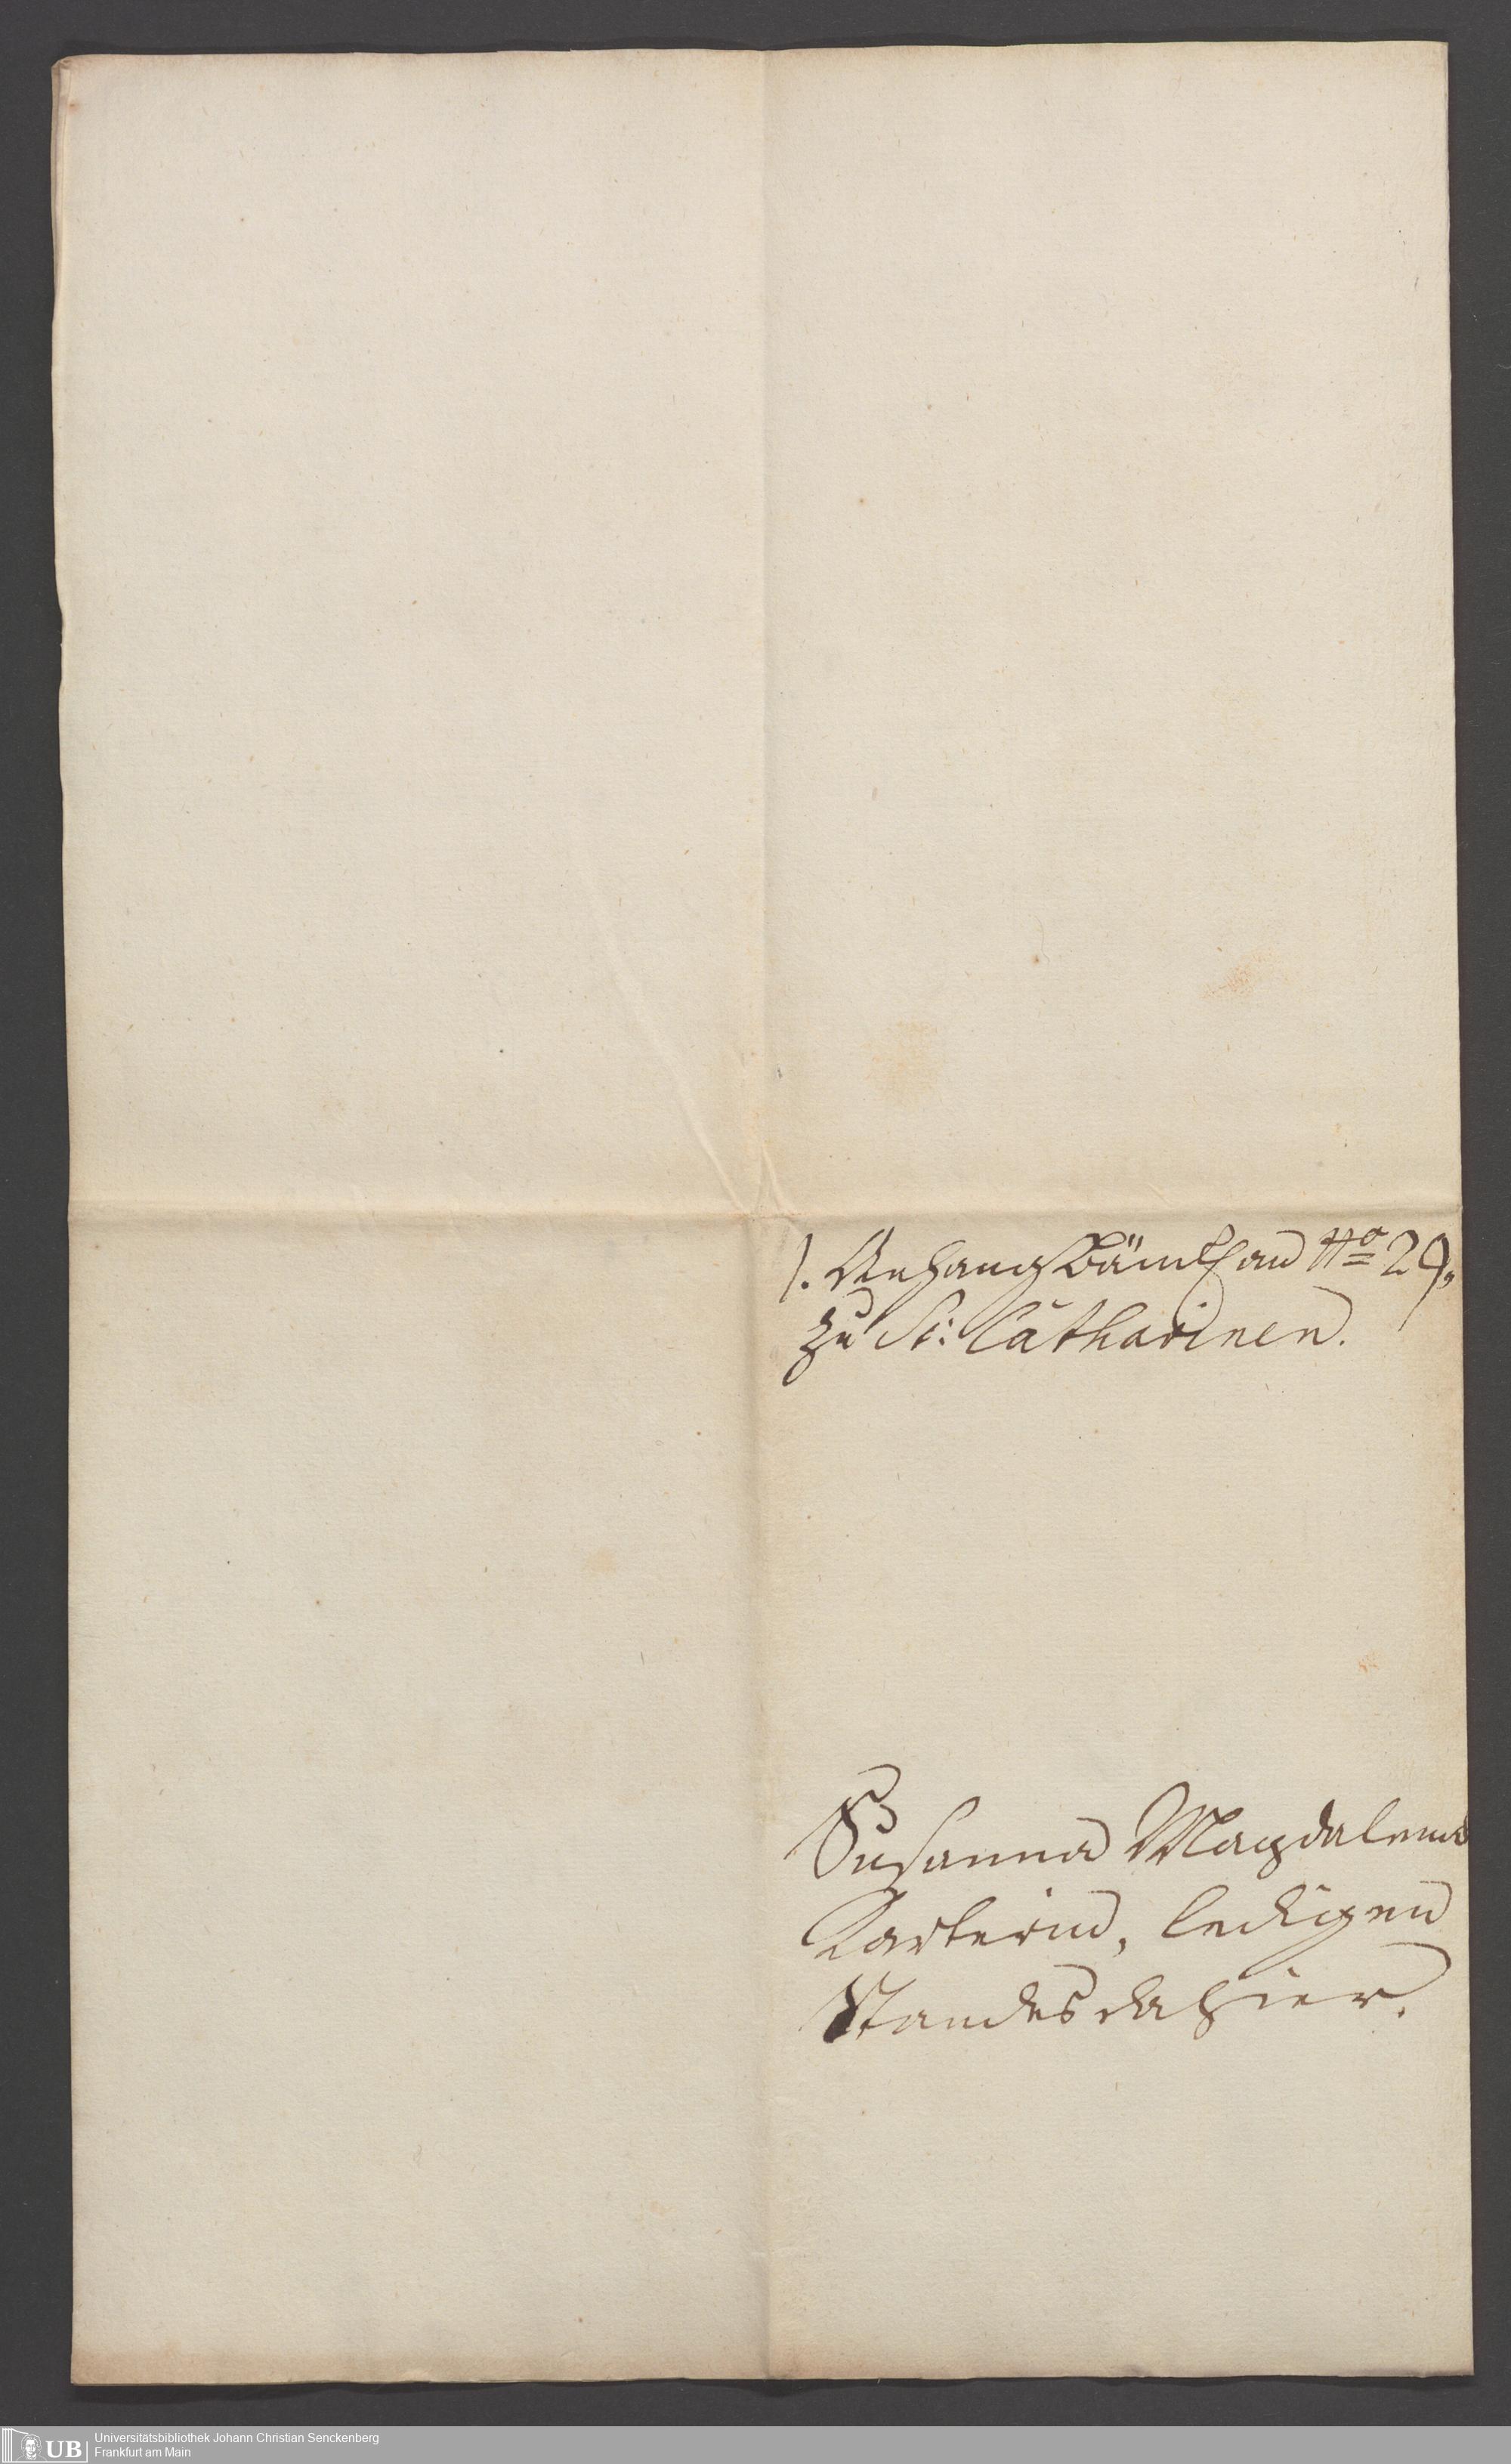 1. Anhang Bänckh an No 29,
zu St: Catharinen.
Susanna Magdalena
ledigen
Standes dahier.
UB
Universitätsbibliothek Johann Christian Senckenberg
Frankfurt am Main